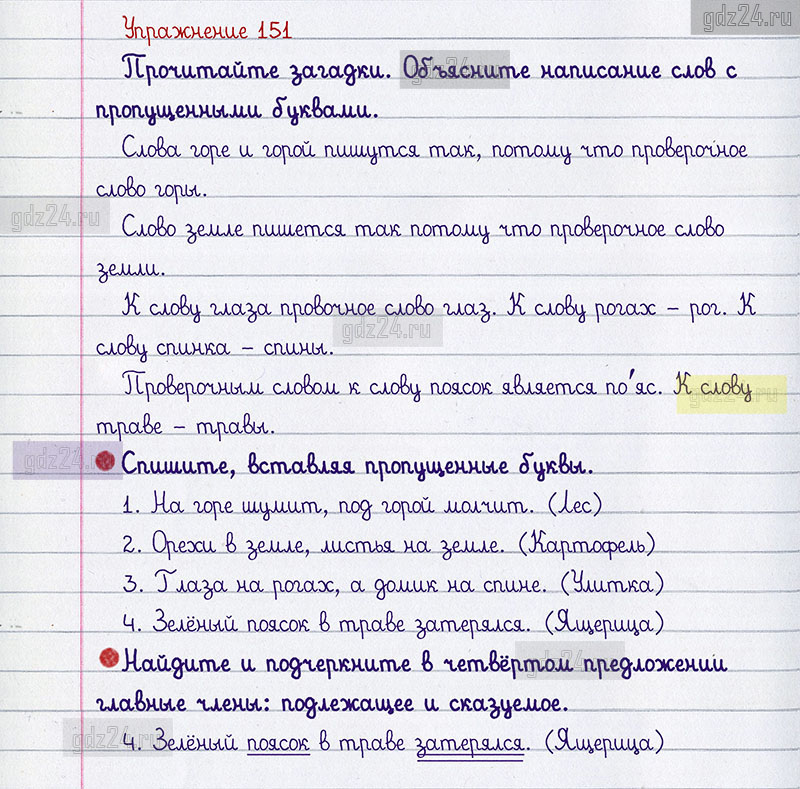 gdz24.ru
Упражнение 151
Прочитайте загадки. Объясните написание слов с
пропущенными буквами.
Слова горе и горой пишутся так, потому что проверочное
слово горы.
gdz24.ru
Слово земле пишется так потому что проверочное слово
земли.
К слову глаза провочное слово глаз. К слову рогах – рог. К
gdz24.ru
слову спинка – спины.
Проверочным словом к слову поясок является по'яс. К слову
траве – травы.
gdz24.ru
Спишите, вставляя пропущенные буквы.
1. На горе шумит, под горой молчит. (Лес)
2. Орехи в земле, листья на земле. (Картофель)
3. Глаза на рогах, а домик на спине. (Улитка)
4. Зелёный поясок в траве затерялся. (Ящерица)
Найдите и подчеркните в четвёртом предложении
главные члены: подлежащее и сказуемое.
gdz24.ru
4. Зелёный поясок в траве затерялся. (Ящерица)